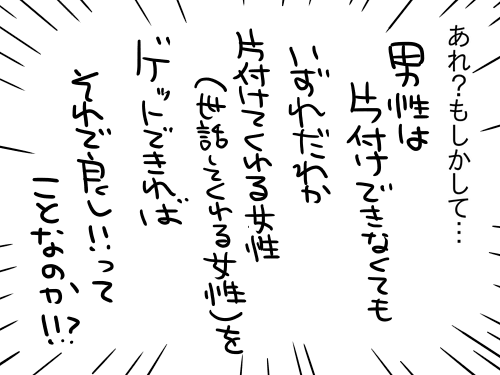 あれ?もしかして…
男性は
片付けできなくても
いずれだれか
片付けてくれる女性
(世話してくれる女性)を
ゲットできれば
それで良し!!って
ことなのか、!!?